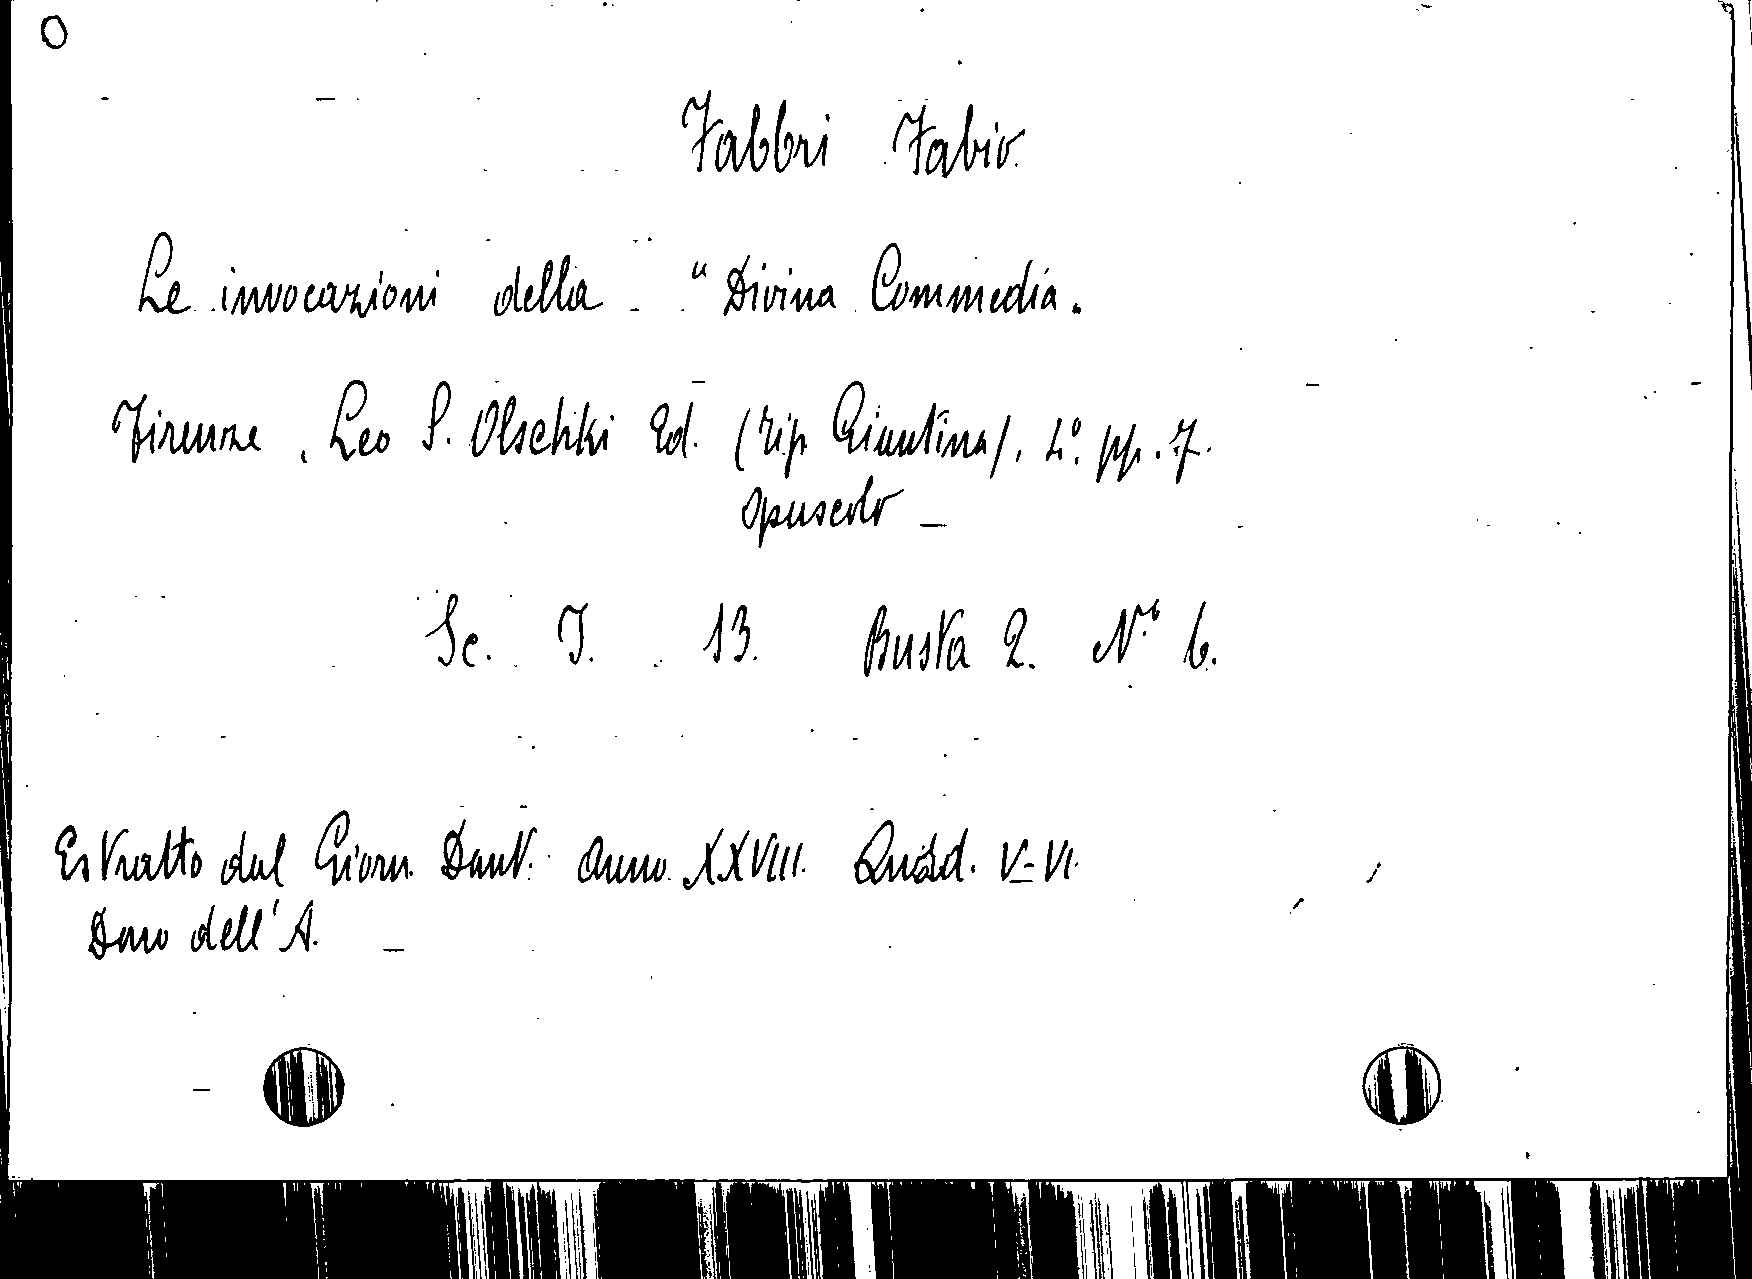 O
Fabbri Fabio.
Le invocazioni della "Divina Commedia.
Firenze, Leo S. Olschki Ed. (Tip Giuntina), 4°. pp. 7.
opuscolo -
Sc. I. 13. Busta 2. N.° 6.
Estratto dal Giorn. Dant. Anno XXVIII. Quad. V-VI.
Dono dell'A. -